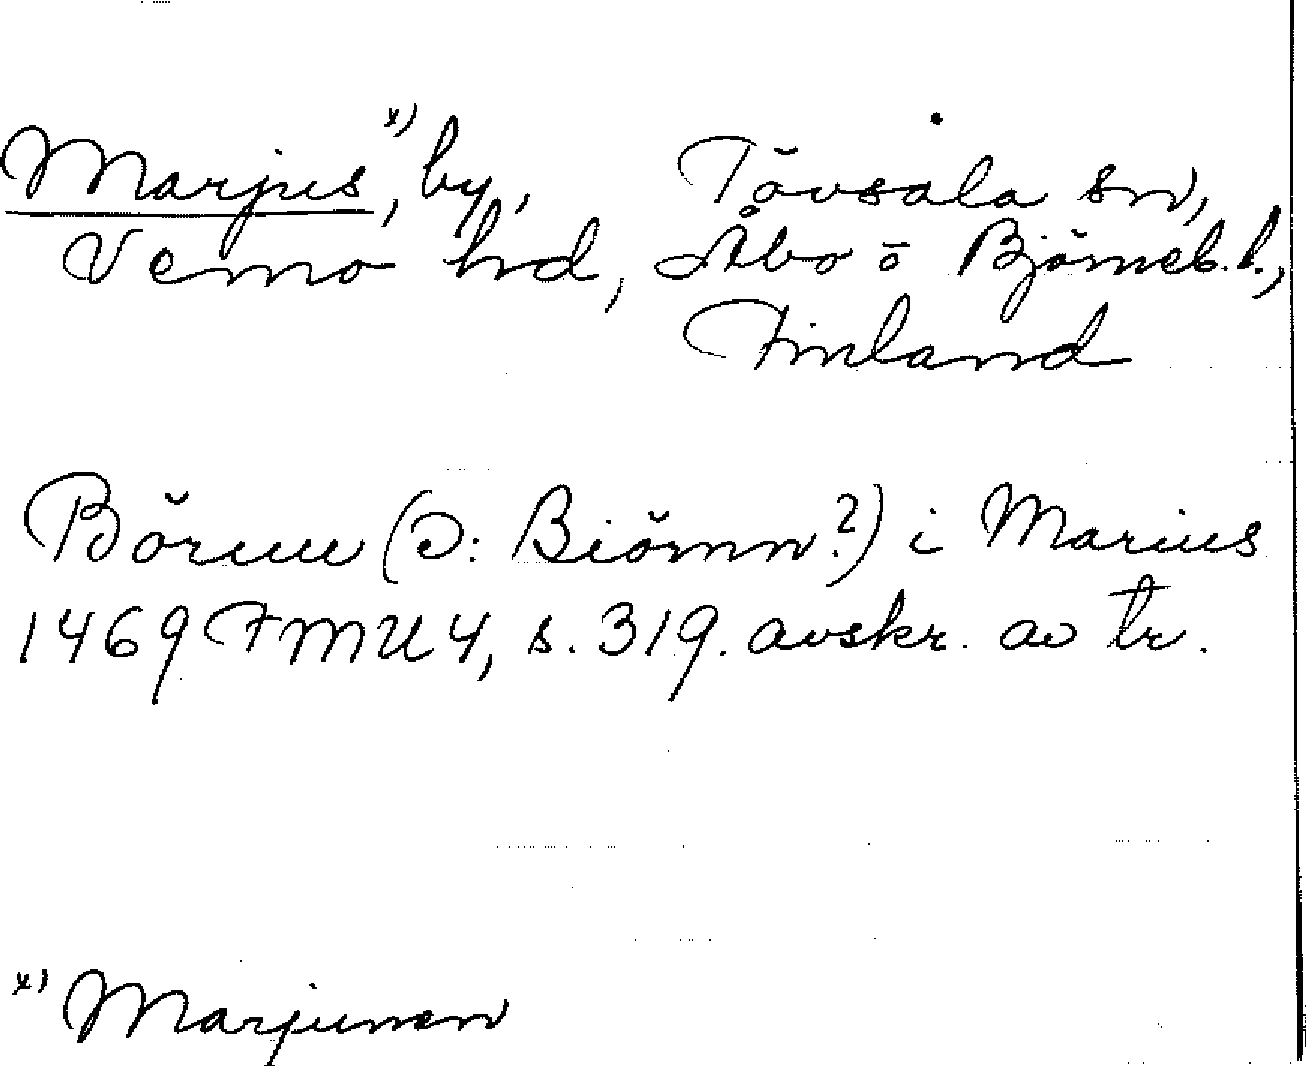 Marjus, x) by, Tövsala sn,
Vemo hd, Åbo o Björneb. l.,
Finland
Börnn (ɔ: Biörnn?) i Marius
1469 FMU 4, s. 319. avskr. av tr.
x) Marjunen